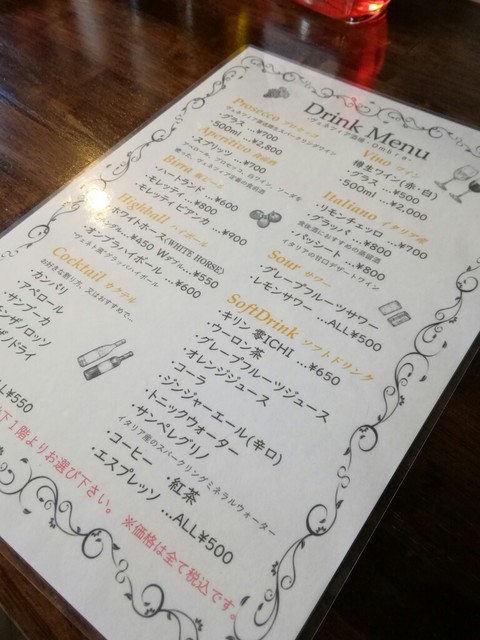 Drink Menu
Prosecco プロセッコ
・グラス …¥700
・500ml …¥2,800
Aperitivo 食前酒
・スプリッツ …¥700
Birra 瓶ビール
・ハートランド …¥600
・モレッティ …¥800
・モレッティ ビアンカ …¥900
Highball ハイボール
ホワイトホース(WHITE HORSE)
¥450 Wダブル…¥550
・オンブライボール …¥600
Cocktail カクテル
お好きな割り方、又はおすすめで…
カンパリ
アペロール
サンブーカ
ドライ
¥550
Vino ワイン
樽生ワイン(赤・白)
・グラス …¥500
・500ml …¥2,000
Italiano イタリア産
・リモンチェッロ …¥700
・グラッパ …¥800
食後酒におすすめの蒸留酒
・パッシート …¥800
イタリアの甘口デザートワイン
Sour サワー
・グレープフルーツサワー
・レモンサワー …ALL¥500
SoftDrink ソフトドリンク
・キリン 零ICHI …¥650
・ウーロン茶
・グレープフルーツジュース
・オレンジジュース
・コーラ
・ジンジャーエール(辛口)
・トニックウォーター
・サンペレグリノ
イタリア産のスパークリングミネラルウォーター
・コーヒー ・紅茶
・エスプレッソ …ALL¥500
下1階よりお選び下さい。 ※価格は全て税込です。